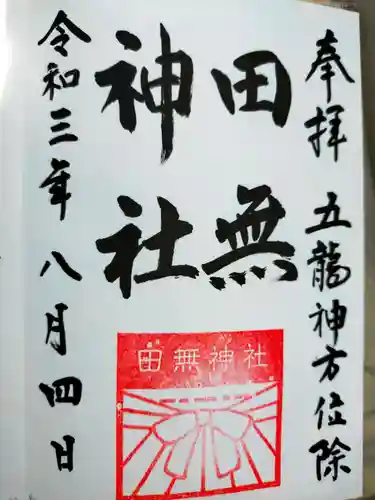 奉拝 五龍神方位除
田無
神社
田無神社
令和三年 八月四日